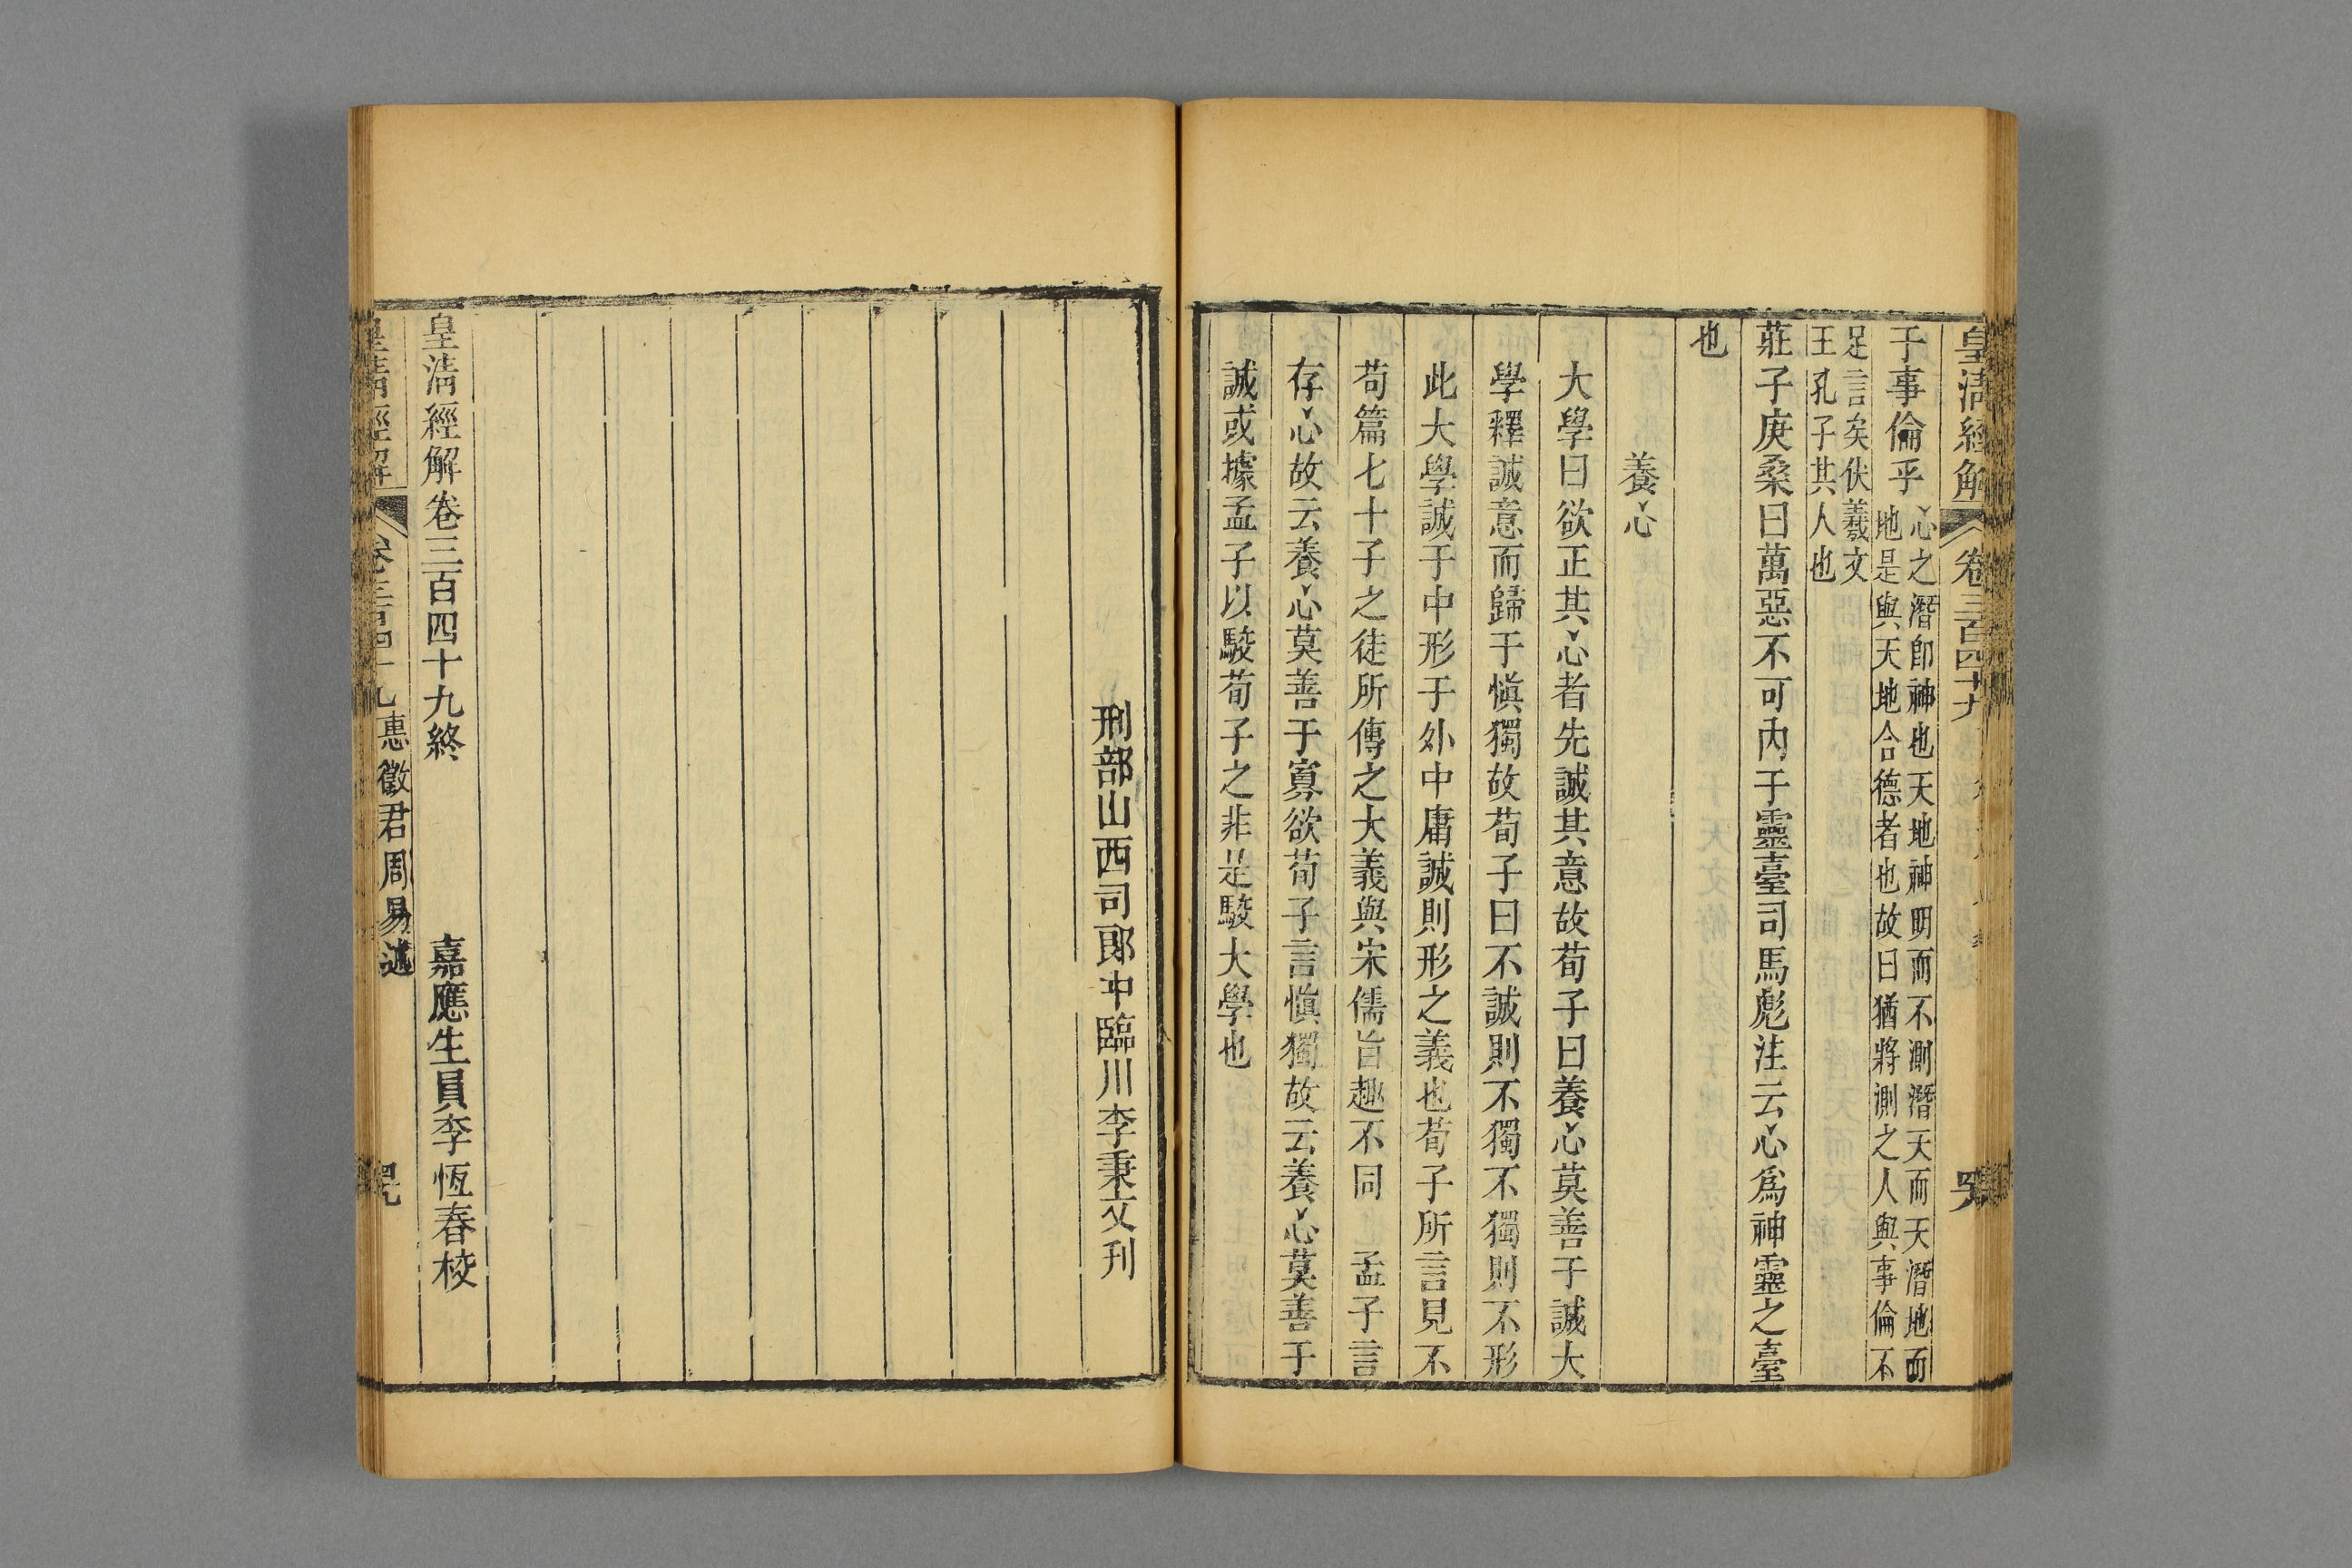 皇清經解 卷三百四十九
于事倫乎
心之潛卽神也天地神明而不測潛天而天潛地而
地是與天地合德者也故曰猶將測之人與事倫不
足言矣伏羲文
王孔子其人也
莊子庚桑曰萬惡不可內于靈臺司馬彪注云心爲神靈之臺
也
養心
大學曰欲正其心者先誠其意故荀子曰養心莫善于誠大
學釋誠意而歸于愼獨故荀子曰不誠則不獨不獨則不形
此大學誠于中形于外中庸誠則形之義也荀子所言見不
苟篇七十子之徒所傳之大義與宋儒旨趣不同 孟子言
存心故云養心莫善于寡欲荀子言愼獨故云養心莫善于
誠或據孟子以駮荀子之非是駮大學也
刑部山西司郎中臨川李秉文刊
皇淸經解卷三百四十九終 嘉應生員李恆春校
皇淸經解 卷三百四十九 惠徵君周易述